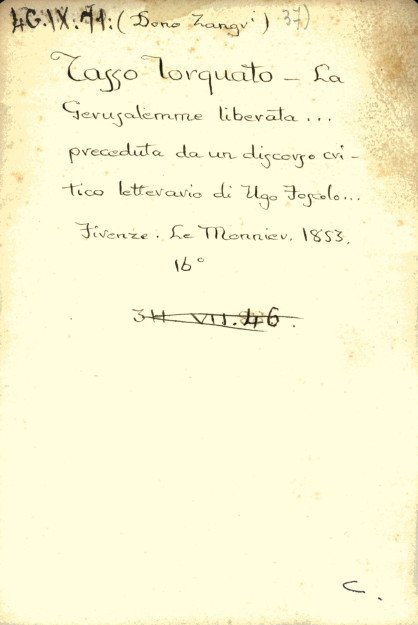 4G.IX.71:(Dono Zangri) 37)
Tasso Torquato – La
Gerusalemme liberata...
preceduta da un discorso cri-
tico letterario di Ugo Foscolo...
Firenze. Le Monnier. 1853.
16°
3H VII.46.
C.